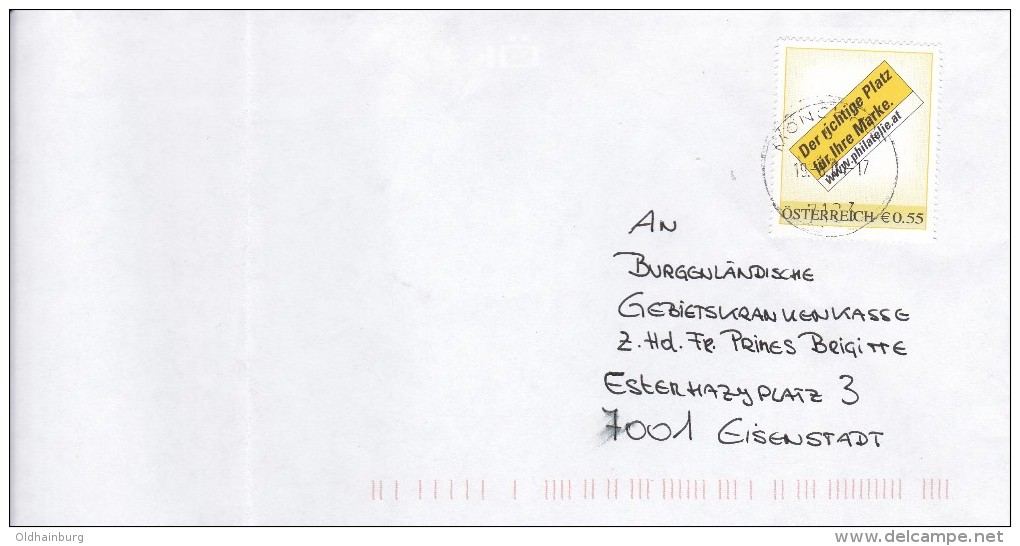 Der richtige Platz
für Ihre Marke.
www.philatelie.at
ÖSTERREICH € 0.55
AN
BURGENLÄNDISCHE
GEBIETSKRANKENKASSE
Z. Hd. Fr. PRINES BRIGITTE
ESTERHAZYPLATZ 3
7001 EISENSTADT
Oldhainburg
www.delcampe.net